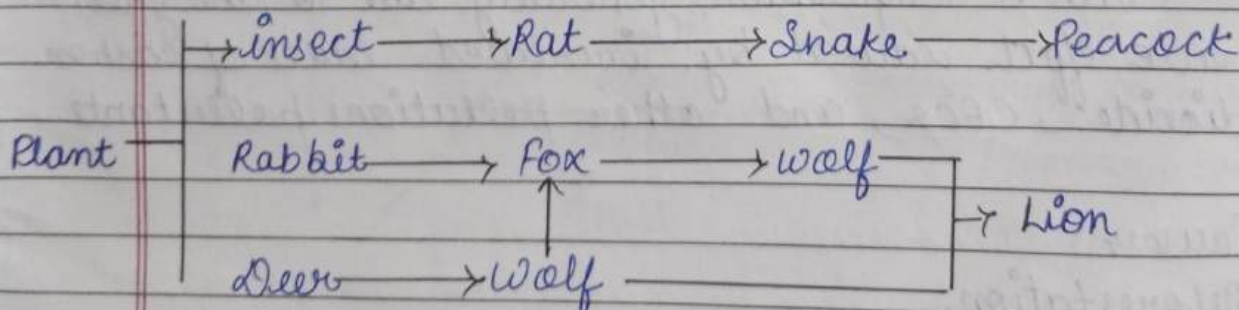 insect → Rat → Snake → Peacock
Plant Rabbit → Fox → Wolf
→ Lion
Deer → Wolf